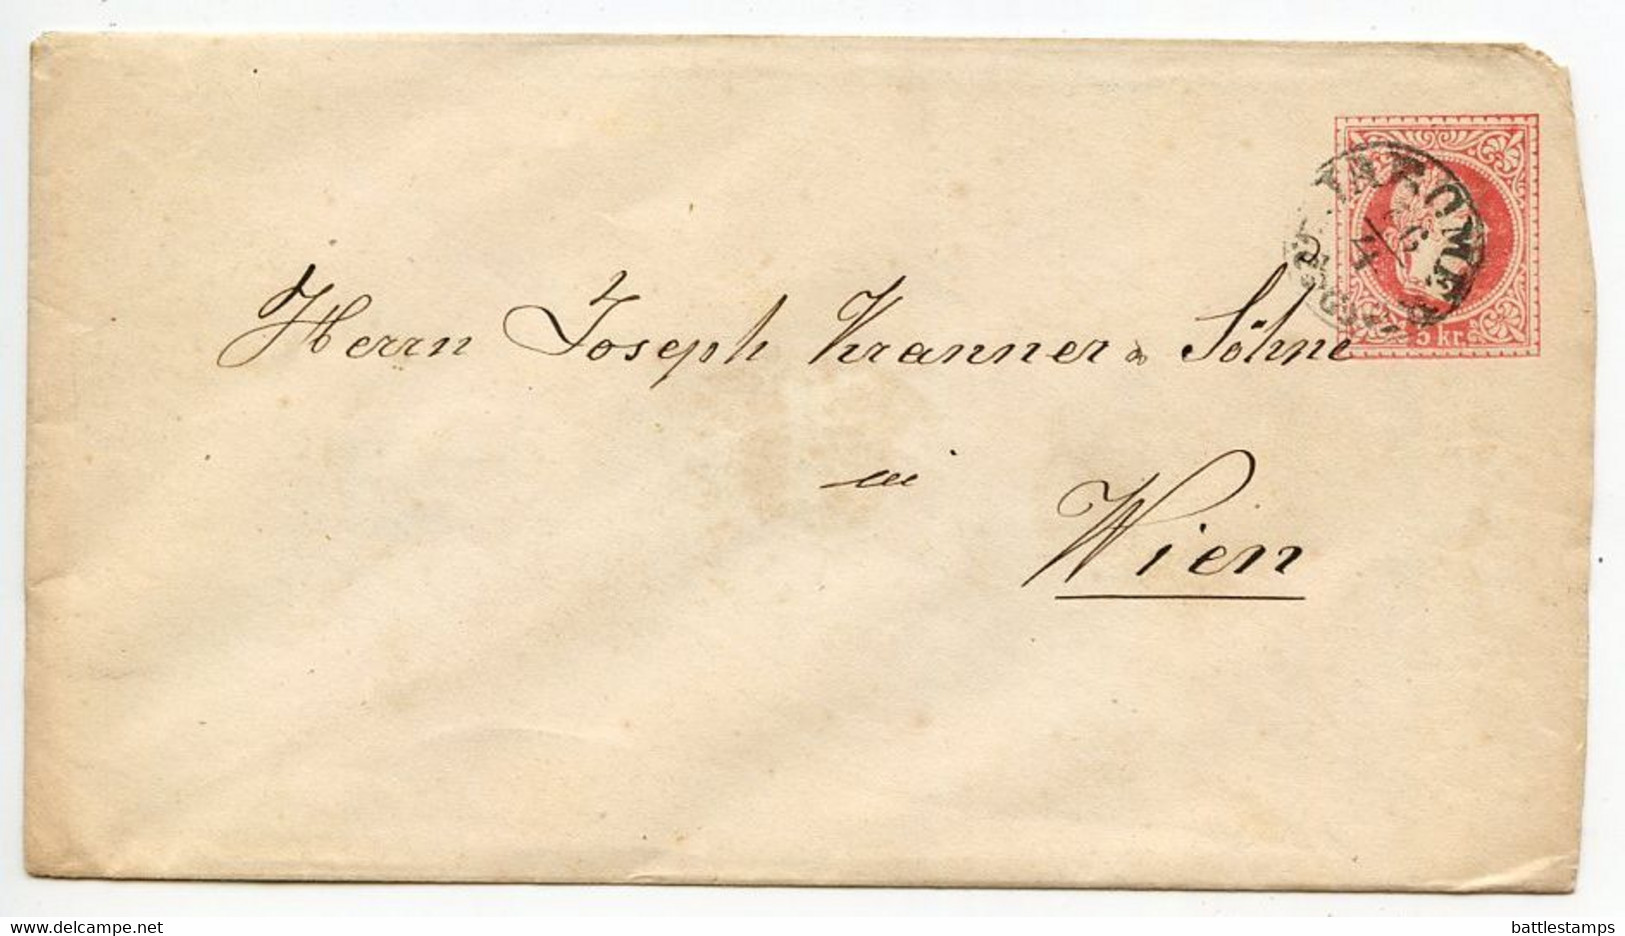 5 kr.
Herrn Joseph Kranner & Söhne
in
Wien
www.delcampe.net
battlestamps